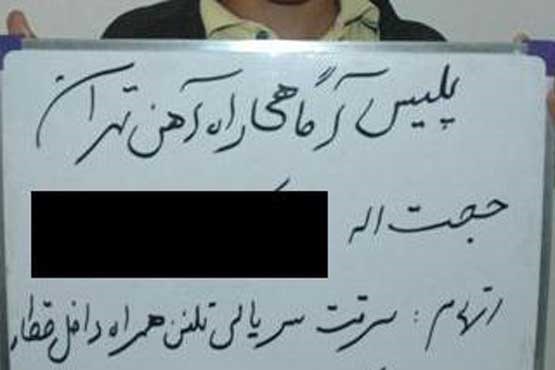 پلیس آگاهی راه آهن تهران
حجت اله
اتهام : سرقت سریالی تلفن همراه داخل قطار